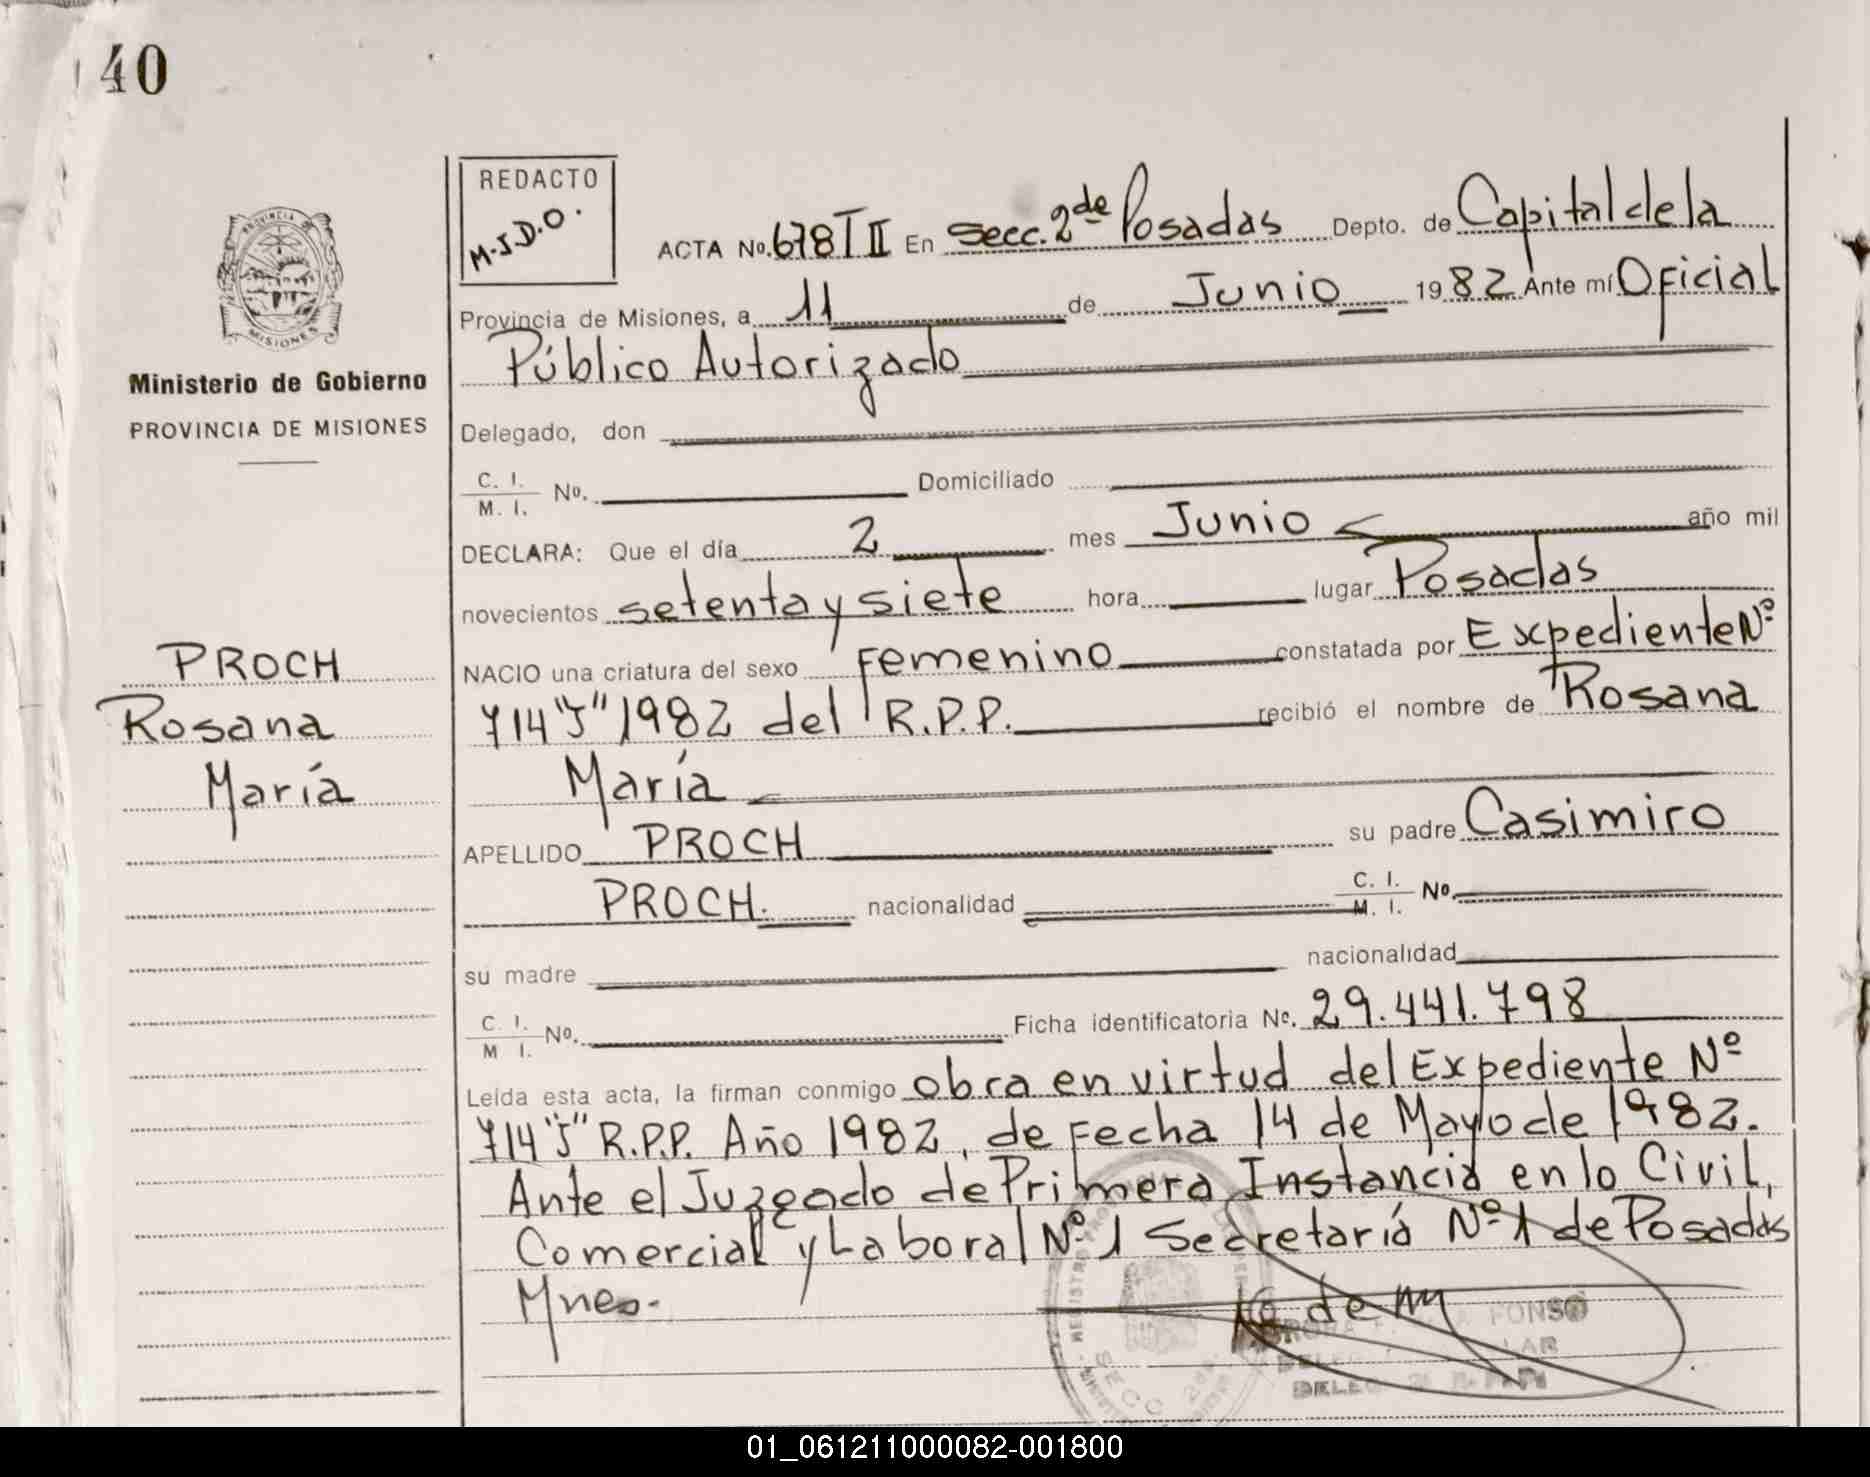 40
PROVINCIA DE
MISIONES
Ministerio de Gobierno
PROVINCIA DE MISIONES
PROCH
Rosana
María
REDACTO
M.J.D.O.
ACTA No. 678 T II En Secc. 2da de Posadas Depto. de Capital de la
Provincia de Misiones, a 11 de Junio 1982 Ante mí Oficial
Público Autorizado
Delegado, don
C. I. / M. I. No. Domiciliado
DECLARA: Que el día 2 mes Junio año mil
novecientos setenta y siete hora lugar Posadas
NACIO una criatura del sexo Femenino constatada por Expediente Nº
714 "J" 1982 del R.P.P. recibió el nombre de Rosana
María
APELLIDO PROCH su padre Casimiro
PROCH. nacionalidad C. I. / M. I. No
su madre nacionalidad
C. I. / M I. No. Ficha identificatoria No. 29.441.798
Leída esta acta, la firman conmigo obra en virtud del Expediente Nº
714 "J" R.P.P. Año 1982, de Fecha 14 de Mayo de 1982.
Ante el Juzgado de Primera Instancia en lo Civil,
Comercial y Laboral Nº 1 Secretaría Nº 1 de Posadas
Mnes.
01_061211000082-001800